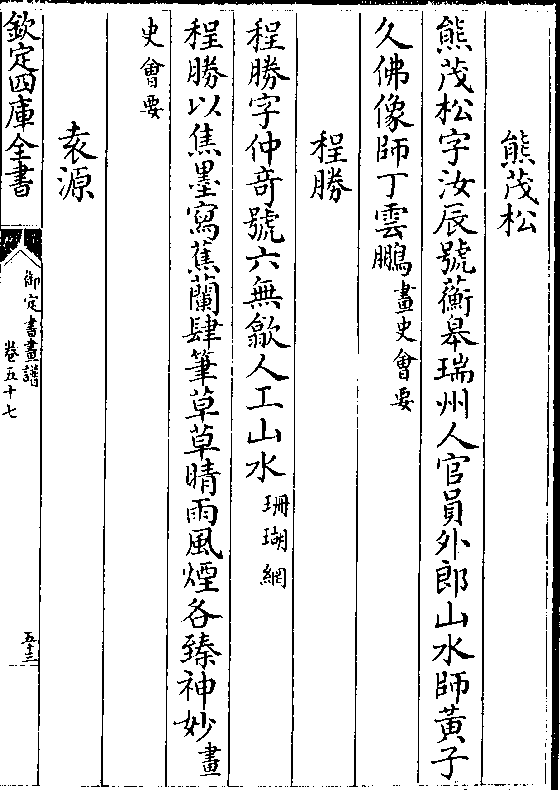 熊茂松
熊茂松字汝辰號蘅皋瑞州人官員外郎山水師黃子
久佛像師丁雲鵬畫史會要
程勝
程勝字仲奇號六無歙人工山水珊瑚網
程勝以焦墨寫蕉蘭肆筆草草晴雨風煙各臻神妙畫
史會要
袁源
欽定四庫全書
御定書畫譜
卷五十七
五十三